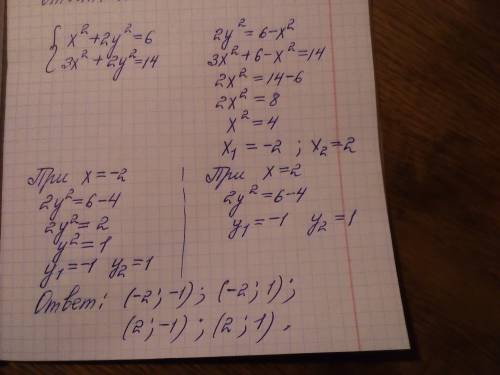 x² + 2y² = 6
3x² + 2y² = 14
2y² = 6 - x²
3x² + 6 - x² = 14
2x² = 14 - 6
2x² = 8
x² = 4
x₁ = -2 ; x₂ = 2
При x = -2
2y² = 6 - 4
2y² = 2
y² = 1
y₁ = -1 y₂ = 1
При x = 2
2y² = 6 - 4
y₁ = -1 y₂ = 1
Ответ: (-2; -1); (-2; 1);
(2; -1); (2; 1).